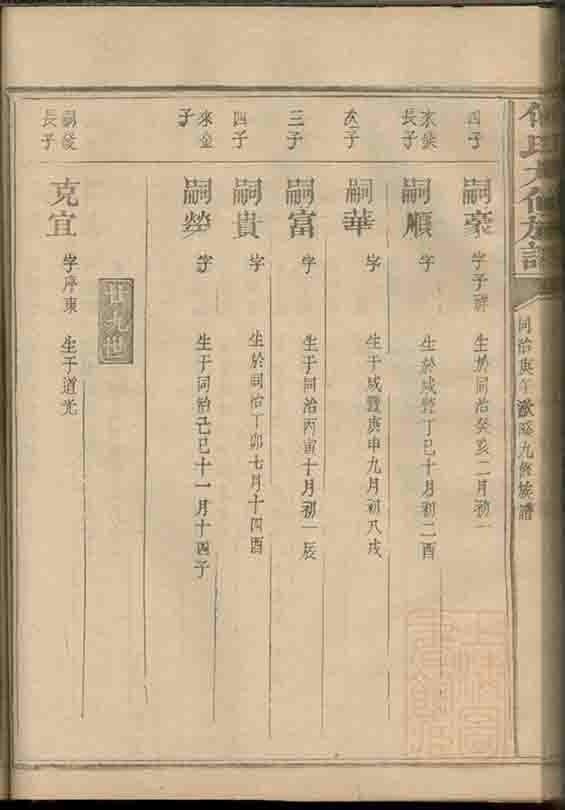 同治庚午敦睦九修族譜
四子
嗣豪 字子祥 生於同治癸亥二月初一
來儀
長子
嗣順 字 生於咸豐丁巳十月初二酉
次子
嗣華 字 生于咸豐庚申九月初八戌
三子
嗣富 字 生于同治丙寅十月初一辰
四子
嗣貴 字 生於同治丁卯七月十四酉
來金
子
嗣榮 字 生于同治己巳十一月十四子
廿九世
長子
克宜 字序東 生于道光
上海圖書館藏